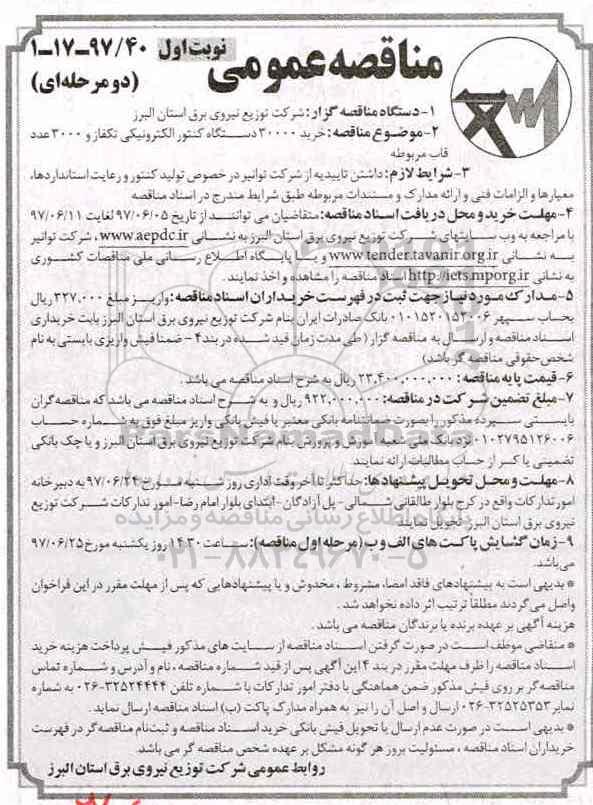 مناقصه عمومی
نوبت اول
۱-۱۷-۹۷/۴۰
(دو مرحله ای)
۱- دستگاه مناقصه گزار: شرکت توزیع نیروی برق استان البرز
۲- موضوع مناقصه: خرید ۳۰۰۰۰ دستگاه کنتور الکترونیکی تکفاز و ۳۰۰۰ عدد
قاب مربوطه
۳- شرایط لازم: داشتن تاییدیه از شرکت توانیر در خصوص تولید کنتور و رعایت استانداردها،
معیارها و الزامات فنی و ارائه مدارک و مستندات مربوطه طبق شرایط مندرج در اسناد مناقصه
۴- مهلت خرید و محل دریافت اسناد مناقصه: متقاضیان می توانند از تاریخ ۹۷/۰۶/۰۵ لغایت ۹۷/۰۶/۱۱
با مراجعه به وب سایتهای شرکت توزیع نیروی برق استان البرز به نشانی www.aepdc.ir، شرکت توانیر
به نشانی www.tender.tavanir.org.ir و یا پایگاه اطلاع رسانی ملی مناقصات کشوری
به نشانی http://iets.mporg.ir اسناد مناقصه را مشاهده و اخذ نمایند.
۵- مدارک مورد نیاز جهت ثبت در فهرست خریداران اسناد مناقصه: واریز مبلغ ۳۲۷,۰۰۰ ریال
بحساب سپهر ۰۱۰۱۵۲۰۱۵۲۰۰۶ بانک صادرات ایران بنام شرکت توزیع نیروی برق استان البرز بابت خریداری
اسناد مناقصه و ارسال به مناقصه گزار (طی مدت زمان قید شده در بند ۴ - ضمنا فیش واریزی بایستی به نام
شخص حقوقی مناقصه گر باشد)
۶- قیمت پایه مناقصه: ۲۳,۴۰۰,۰۰۰,۰۰۰ ریال به شرح اسناد مناقصه می باشد.
۷- مبلغ تضمین شرکت در مناقصه: ۹۲۲,۰۰۰,۰۰۰ ریال و به شرح اسناد مناقصه می باشد که مناقصه گران
بایستی سپرده مذکور را بصورت ضمانتنامه بانکی معتبر یا فیش بانکی واریز مبلغ فوق به شماره حساب
۰۱۰۲۷۹۵۱۲۶۰۰۶ نزد بانک صادرات شعبه آموزش و پرورش بنام شرکت توزیع نیروی برق استان البرز و یا چک بانکی
تضمینی یا کسر از حساب مطالبات ارائه نمایند.
۸- مهلت و محل تحویل پیشنهادها: حداکثر تا آخر وقت اداری روز شنبه مورخ ۹۷/۰۶/۲۴ به دبیرخانه
امور تدارکات واقع در کرج بلوار طالقانی شمالی - پل آزادگان - ابتدای بلوار امام رضا - امور تدارکات شرکت توزیع
نیروی برق استان البرز تحویل نمایند.
۹- زمان گشایش پاکت های الف و ب (مرحله اول مناقصه): ساعت ۱۴:۳۰ روز یکشنبه مورخ ۹۷/۰۶/۲۵
می باشد.
* بدیهی است به پیشنهادهای فاقد امضا، مشروط، مخدوش و یا پیشنهادهایی که پس از مهلت مقرر در این فراخوان
واصل می گردند مطلقاً ترتیب اثر داده نخواهد شد.
هزینه آگهی بر عهده برنده یا برندگان مناقصه می باشد.
* متقاضی موظف است در صورت گرفتن اسناد مناقصه از سایت های مذکور فیش پرداخت هزینه خرید
اسناد مناقصه را ظرف مهلت مقرر در بند ۴ این آگهی پس از قید شماره مناقصه، نام و آدرس و شماره تماس
مناقصه گر بر روی فیش مذکور ضمن هماهنگی با دفتر امور تدارکات با شماره تلفن ۳۲۵۲۴۴۴۴-۰۲۶ به شماره
نمابر ۳۲۵۲۵۳۵۳-۰۲۶ ارسال و اصل آن را نیز به همراه مدارک پاکت (ب) اسناد مناقصه ارسال نماید.
* بدیهی است در صورت عدم ارسال یا تحویل فیش بانکی خرید اسناد مناقصه و ثبت نام مناقصه گر در فهرست
خریداران اسناد مناقصه، مسئولیت بروز هر گونه مشکل بر عهده شخص مناقصه گر می باشد.
روابط عمومی شرکت توزیع نیروی برق استان البرز
پایگاه اطلاع رسانی مناقصه و مزایده
۰۲۱-۸۸۳۴۹۶۷۰-۵